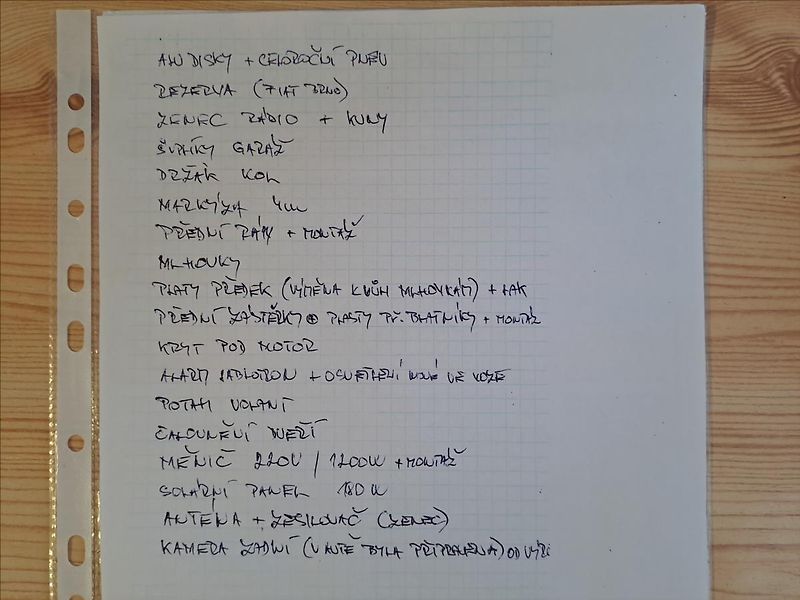 ALU DISKY + CELOROČNÍ PNEU
REZERVA (FIAT BRNO)
ZENEC RÁDIO +
ŠUPLÍKY GARÁŽ
DRŽÁK KOL
MARKÝZA 4m
PŘEDNÍ RÁMY + MONTÁŽ
MLHOVKY
PLATY PŘEDEK (VÝMĚNA KVŮLI MLHOVKÁM) + LAK
PŘEDNÍ ZÁSTĚRKY + PLASTY PŘ. BLATNÍKY + MONTÁŽ
KRYT POD MOTOR
ALARM JABLOTRON + OSVĚTLENÍ NOVÉ VE VOZE
POTAH VOLANT
ČALOUNĚNÍ DVEŘÍ
MĚNIČ 220V / 1200W + MONTÁŽ
SOLÁRNÍ PANEL 180 W
ANTÉNA + ZESILOVAČ (ZENEC)
KAMERA ZADNÍ (V AUTĚ BYLA PŘIPRAVENA) OD